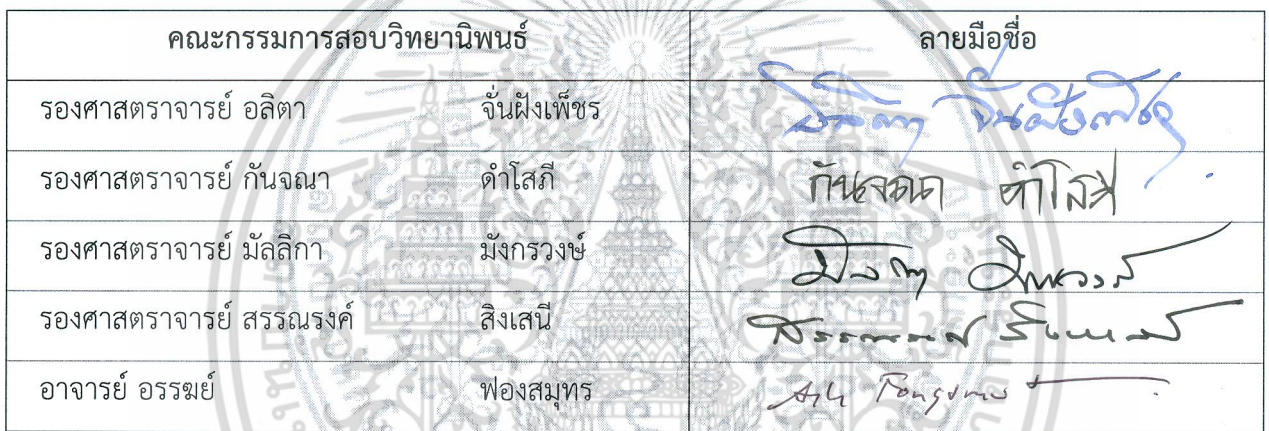 คณะกรรมการสอบวิทยานิพนธ์ ลายมือชื่อ
รองศาสตราจารย์ อลิตา จั่นฝังเพ็ชร อลิตา จั่นฝังเพ็ชร
รองศาสตราจารย์ กันจณา ดำโสภี กันจณา ดำโสภี
รองศาสตราจารย์ มัลลิกา มังกรวงษ์
รองศาสตราจารย์ สรรณรงค์ สิงเสนี
อาจารย์ อรรฆย์ ฟองสมุทร